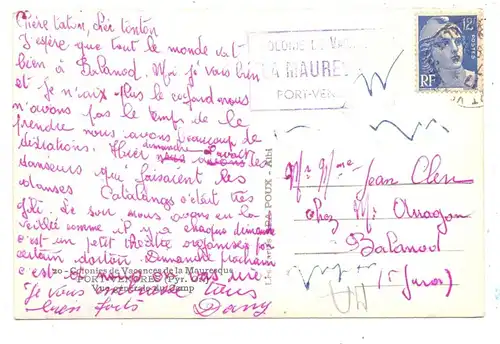 Chère tatan, cher tonton
J'espère que tout le monde va
bien à Balanod. Moi je vais bien
et je n'aix plus le cafard nous
n'avons pas le temps de le
prendre nous avons beaucoup de
distrations. Hier dimanche
danseurs qui faisaient les
danses Catalanes s'était très
joli. Le soir nous avons eu la
veillée comme il y a chaque dimanche
c'est un petit théâtre organiser par
certain dortoir. Dimanche prochain
c'est
Je vous embrasse tous
bien forts Dany
20 - Colonies de Vacances de la Mauresque
PORT-VENDRES (Pyr.-Or.)
Vue générale du Camp
POUX - Albi
COLONIE DE VAC
LA MAURES
PORT-VEN
12F
POSTES
RF
Mr Mme Jean Clerc
chez Mr
Balanod
(Jura)